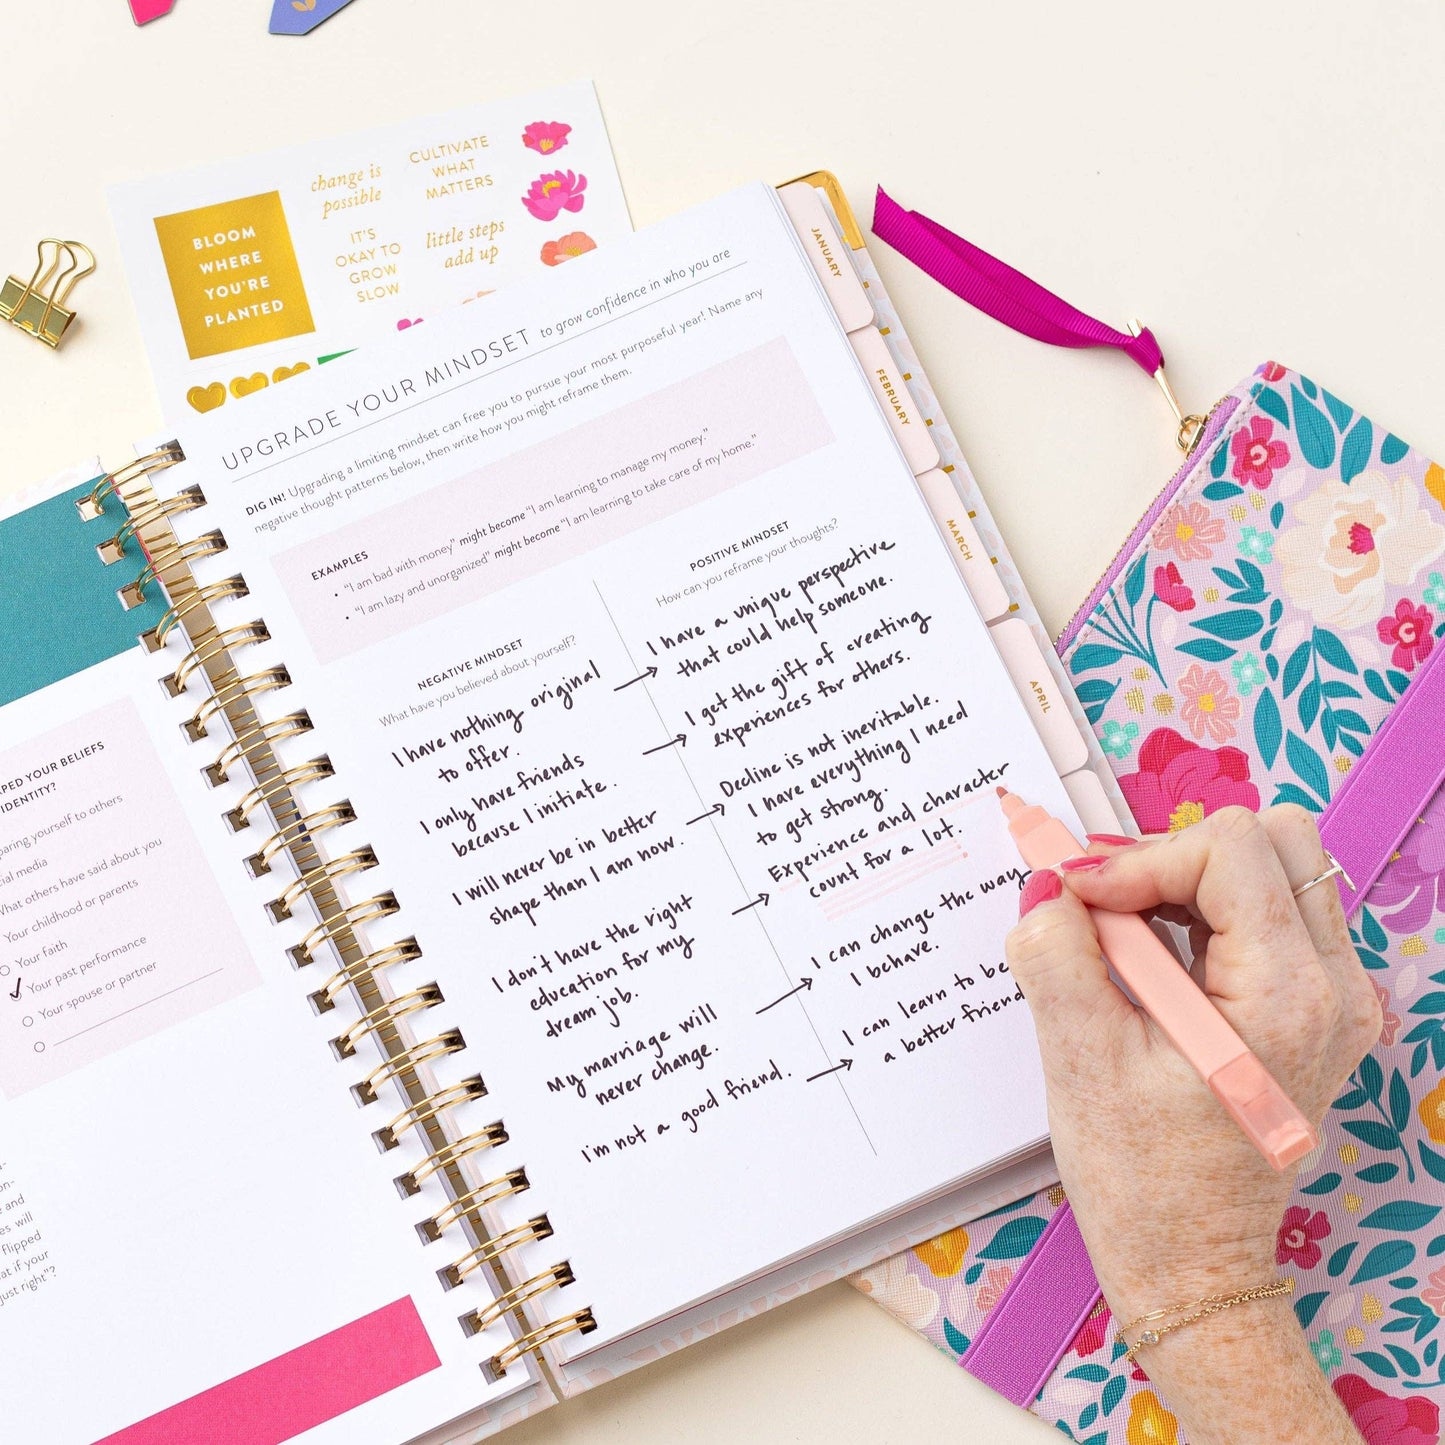 change is
possible
CULTIVATE
WHAT
MATTERS
BLOOM
WHERE
YOU'RE
PLANTED
IT'S
OKAY TO
GROW
SLOW
little steps
add up
UPGRADE YOUR MINDSET to grow confidence in who you are
DIG IN! Upgrading a limiting mindset can free you to pursue your most purposeful year! Name any
negative thought patterns below, then write how you might reframe them.
EXAMPLES
• "I am bad with money" might become "I am learning to manage my money."
• "I am lazy and unorganized" might become "I am learning to take care of my home."
NEGATIVE MINDSET
What have you believed about yourself?
I have nothing original
to offer.
I only have friends
because I initiate.
I will never be in better
shape than I am now.
I don't have the right
education for my
dream job.
My marriage will
never change.
I'm not a good friend.
POSITIVE MINDSET
How can you reframe your thoughts?
I have a unique perspective
that could help someone.
I get the gift of creating
experiences for others.
Decline is not inevitable.
I have everything I need
to get strong.
Experience and character
count for a lot.
I can change the way
I behave.
I can learn to be
a better friend
JANUARY
FEBRUARY
MARCH
APRIL
APED YOUR BELIEFS
IDENTITY?
paring yourself to others
cial media
What others have said about you
Your childhood or parents
Your faith
Your past performance
Your spouse or partner
and
es will
flipped
at if your
just right"?